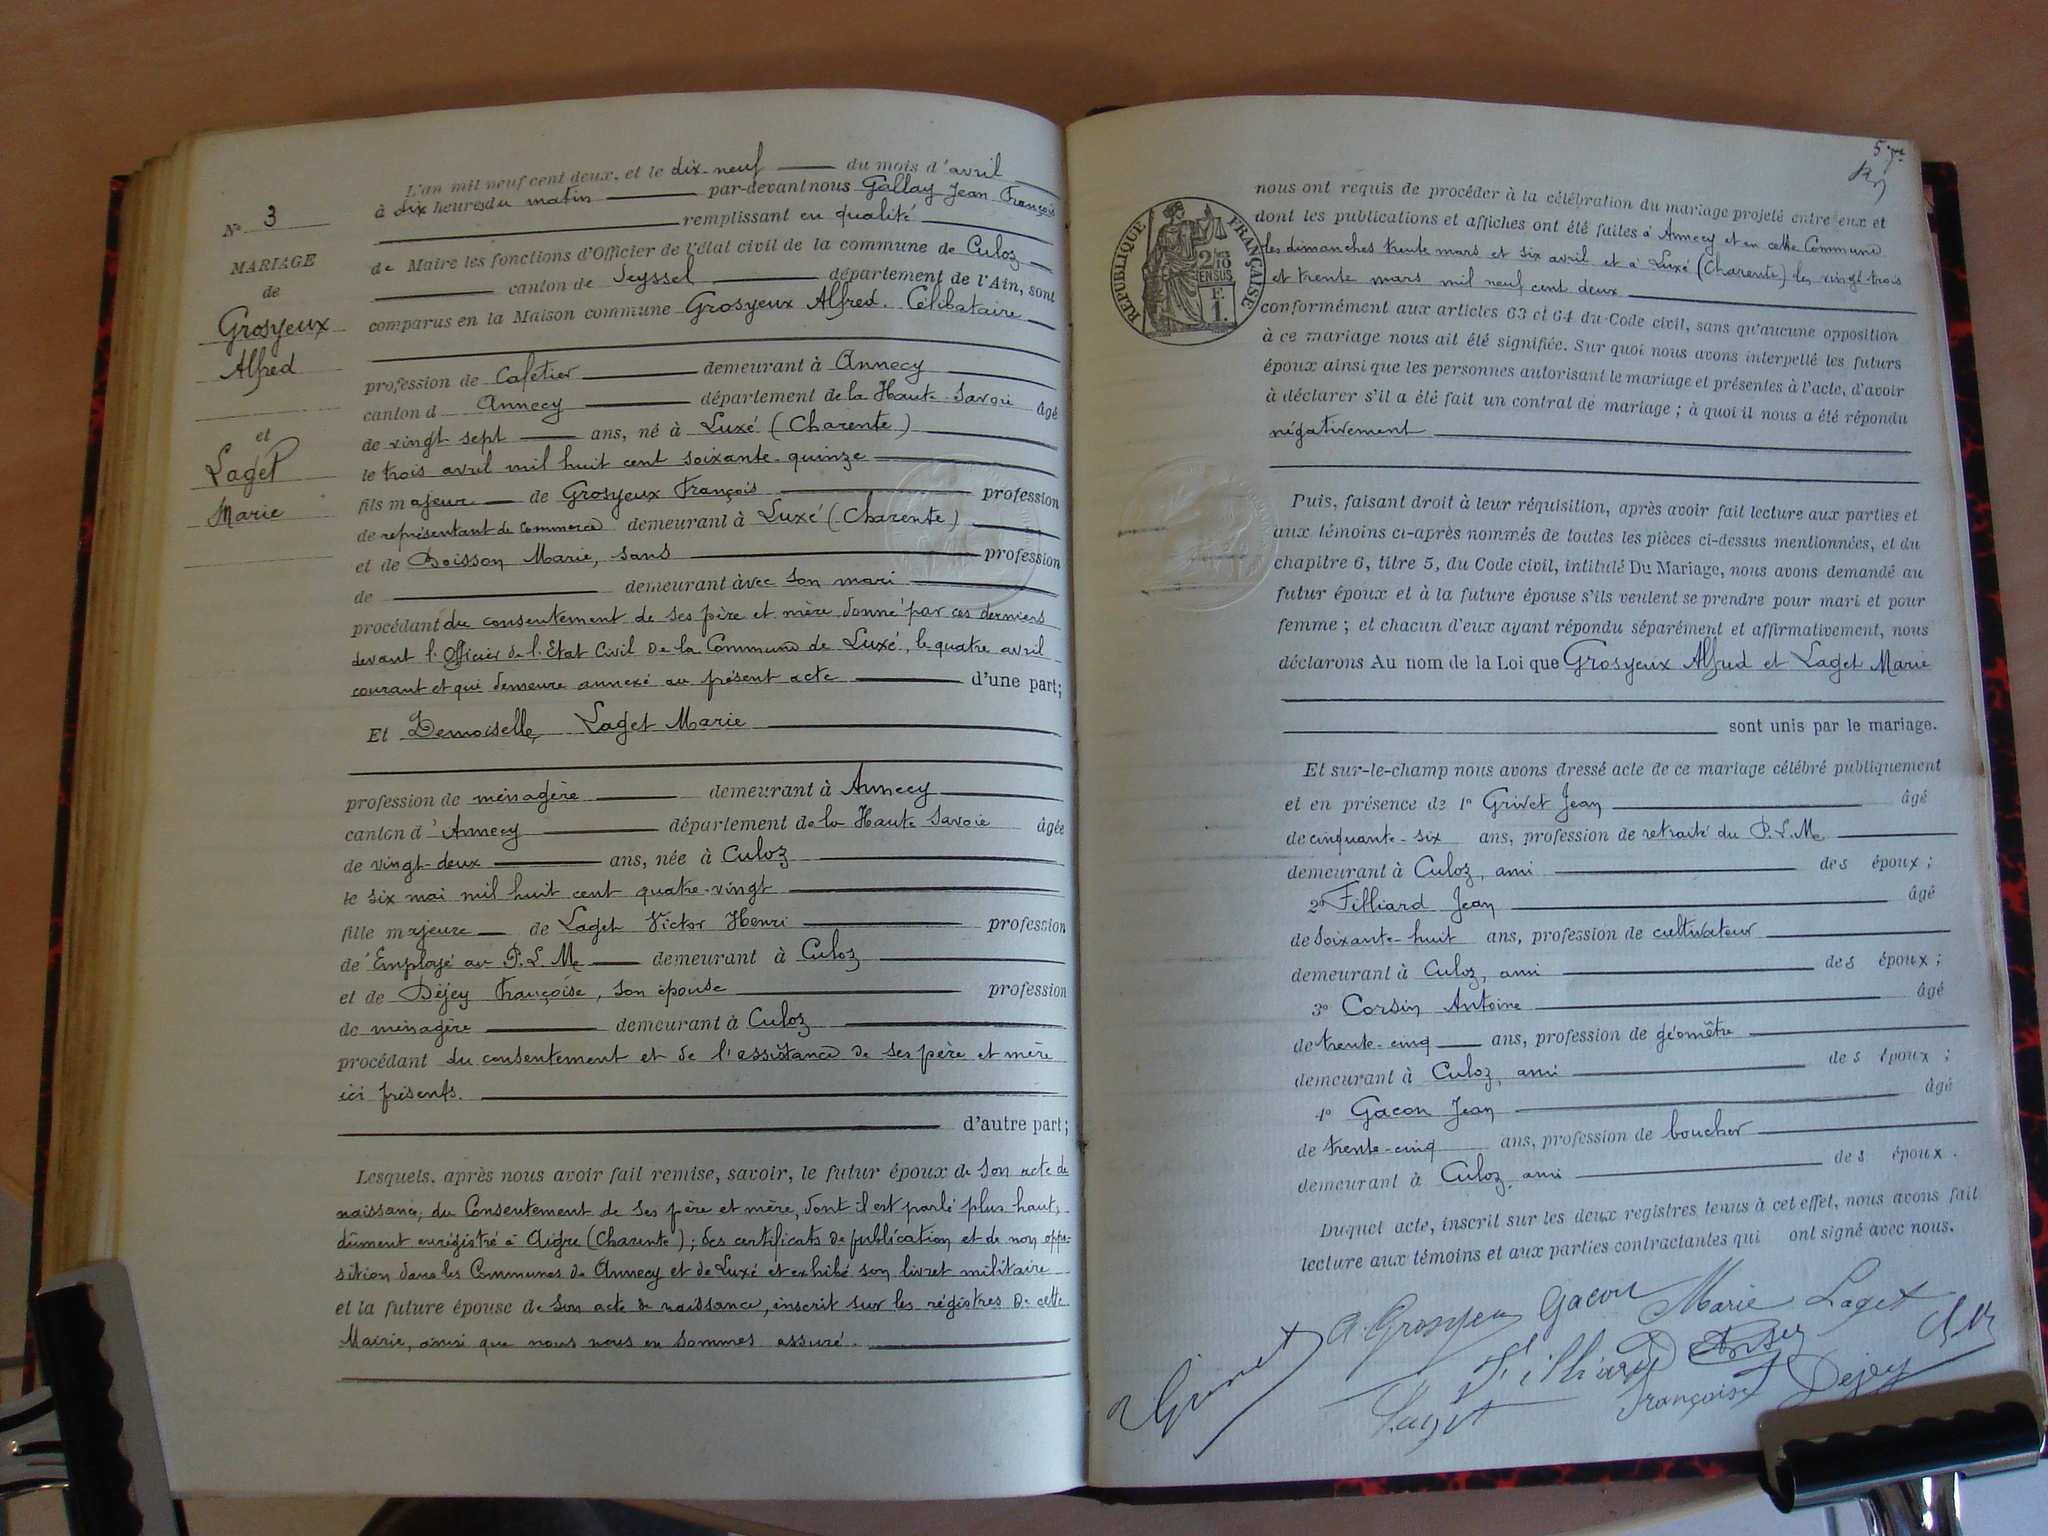 N° 3
MARIAGE
de
Grosyeux
Alfred
et
Laget
Marie
L'an mil neuf cent deux, et le dix-neuf du mois d'avril
à dix heures du matin par-devant nous Gallay Jean François
remplissant en qualité
de Maire les fonctions d'Officier de l'état civil de la commune de Culoz
canton de Seyssel département de l'Ain, sont
comparus en la Maison commune Grosyeux Alfred. Célibataire
profession de Cafetier demeurant à Annecy
canton d Annecy département de la Haute-Savoie âgé
de vingt sept ans, né à Luxé (Charente)
le trois avril mil huit cent soixante-quinze
fils majeur de Grosyeux François profession
de représentant de commerce demeurant à Luxé (Charente)
et de Boisson Marie, sans profession
de demeurant avec son mari
procédant du consentement de ses père et mère, donné par ces derniers
devant l'Officier de l'Etat Civil de la Commune de Luxé, le quatre avril
courant et qui demeure annexé au présent acte d'une part;
Et Demoiselle, Laget Marie
profession de ménagère demeurant à Annecy
canton d'Annecy département de la Haute Savoie âgée
de vingt-deux ans, née à Culoz
le six mai mil huit cent quatre-vingt
fille majeure de Laget Victor Henri profession
de Employé au P.L.M. demeurant à Culoz
et de Déjey Françoise, son épouse profession
de ménagère demeurant à Culoz
procédant du consentement et de l'assistance de ses père et mère
ici présents.
d'autre part;
Lesquels, après nous avoir fait remise, savoir, le futur époux de son acte de
naissance, du Consentement de ses père et mère, dont il est parlé plus haut,
dûment enrégistré à Aigre (Charente); des certificats de publication et de non oppo-
sition dans les Communes de Annecy et de Luxé et exhibé son livret militaire
et la future épouse de son acte de naissance, inscrit sur les régistres de cette
Mairie, ainsi que nous nous en sommes assuré.
5
RÉPUBLIQUE FRANÇAISE
2/10 EN SUS
F.
1.
nous ont requis de procéder à la célébration du mariage projeté entre eux et
dont les publications et affiches ont été faites à Annecy et en cette Commune
les dimanches trente mars et six avril et à Luxé (Charente) les vingt-trois
et trente mars mil neuf cent deux
conformément aux articles 63 et 64 du Code civil, sans qu'aucune opposition
à ce mariage nous ait été signifiée. Sur quoi nous avons interpellé les futurs
époux ainsi que les personnes autorisant le mariage et présentes à l'acte, d'avoir
à déclarer s'il a été fait un contrat de mariage; à quoi il nous a été répondu
négativement
Puis, faisant droit à leur réquisition, après avoir fait lecture aux parties et
aux témoins ci-après nommés de toutes les pièces ci-dessus mentionnées, et du
chapitre 6, titre 5, du Code civil, intitulé Du Mariage, nous avons demandé au
futur époux et à la future épouse s'ils veulent se prendre pour mari et pour
femme; et chacun d'eux ayant répondu séparément et affirmativement, nous
déclarons Au nom de la Loi que Grosyeux Alfred et Laget Marie
sont unis par le mariage.
Et sur-le-champ nous avons dressé acte de ce mariage célébré publiquement
et en présence de 1° Grivet Jean âgé
de cinquante-six ans, profession de retraité du P.L.M.
demeurant à Culoz, ami des époux;
2° Filliard Jean âgé
de soixante-huit ans, profession de cultivateur
demeurant à Culoz, ami des époux;
3° Corsin Antoine âgé
de trente-cinq ans, profession de géomètre
demeurant à Culoz, ami des époux;
4° Gacon Jean âgé
de trente-cinq ans, profession de boucher
demeurant à Culoz, ami des époux.
Duquel acte, inscrit sur les deux registres tenus à cet effet, nous avons fait
lecture aux témoins et aux parties contractantes qui ont signé avec nous.
A. Grosyeux Gacon Marie Laget
Grivet Filliard
Laget Françoise Dejey